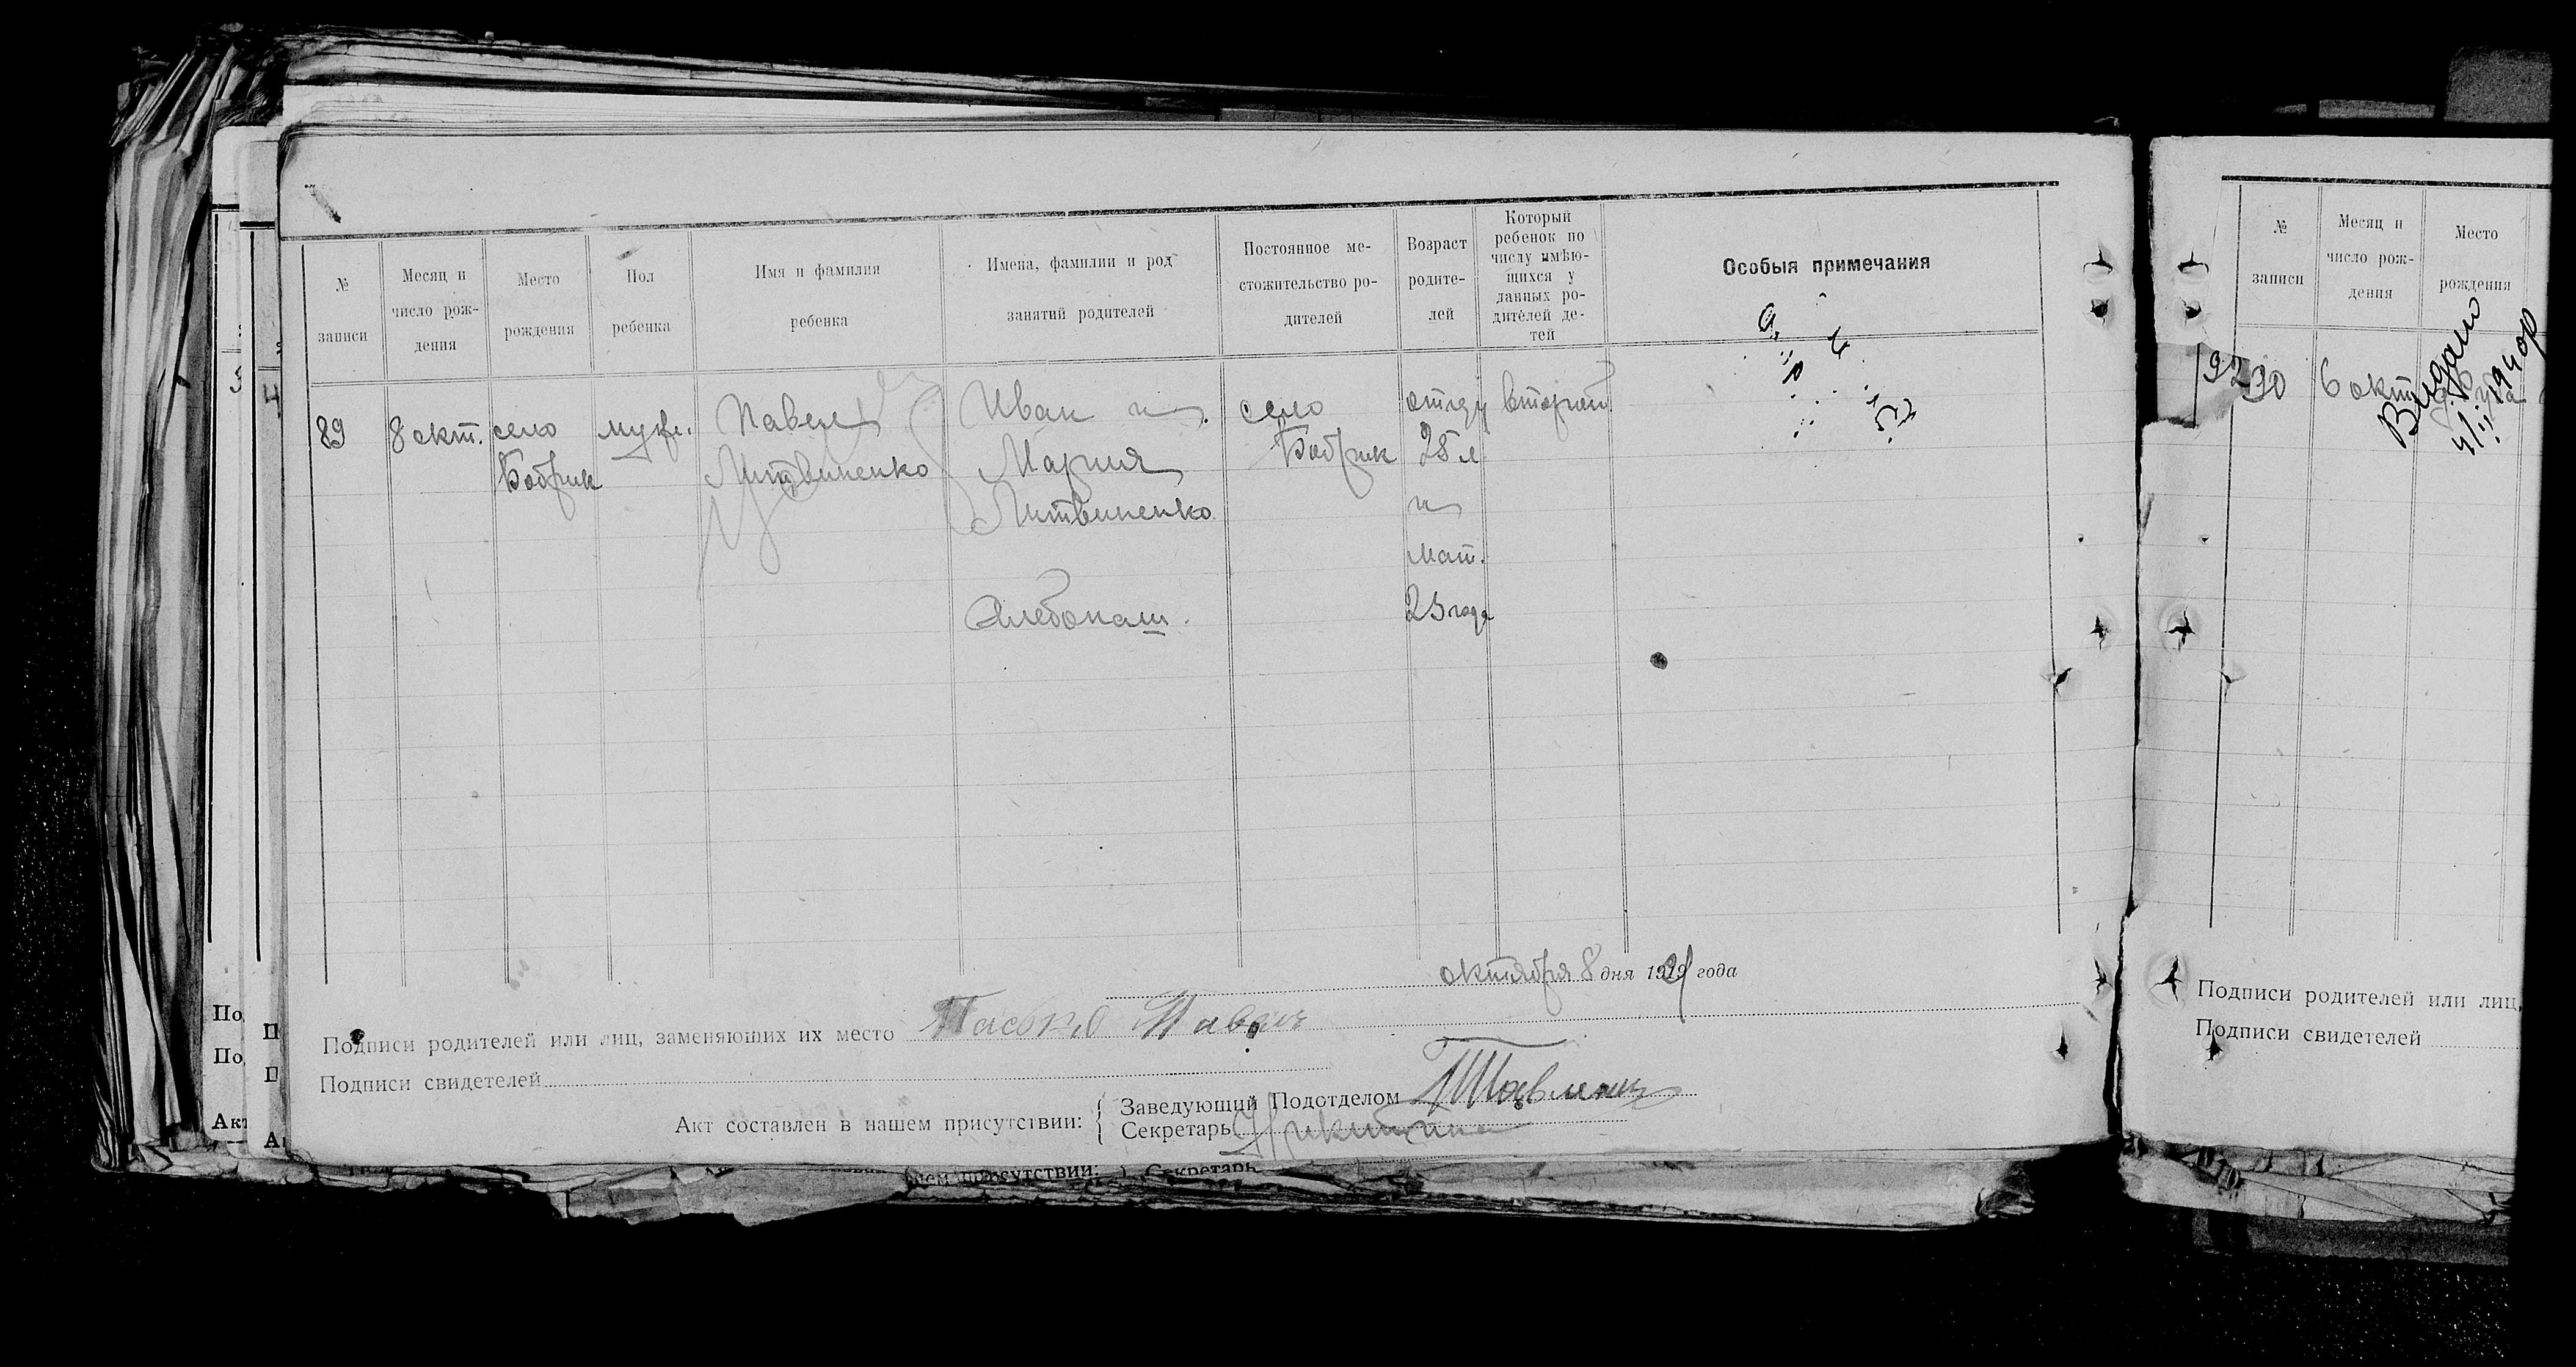 № записи
Месяц и число рож- дения
Место рождения
Пол ребенка
Имя и фамилия ребенка
Имена, фамилии и род занятий родителей
Постоянное ме- стожительство ро- дителей
Возраст родите- лей
Который ребенок по числу имѣю- щихся у данных ро- дителей де- тей
Особыя примечания
89
8 окт.
село
Бобрик
муж.
Павел
Литвиненко
Иван и
Мария
Литвиненко
Хлебопаш.
село
Бобрик
отцу
28 л
и
мат.
23 года
второй
октября 8 дня 19 года
Подписи родителей или лиц, заменяющих их место Пасько Павел
Подписи свидетелей
Акт составлен в нашем присутствии:
Заведующий Подотделом
Секретарь
нем присутствии: Секретарь
№ записи
Месяц и число рож- дения
Место рождения
90
6 окт
Подписи родителей или лиц,
Подписи свидетелей